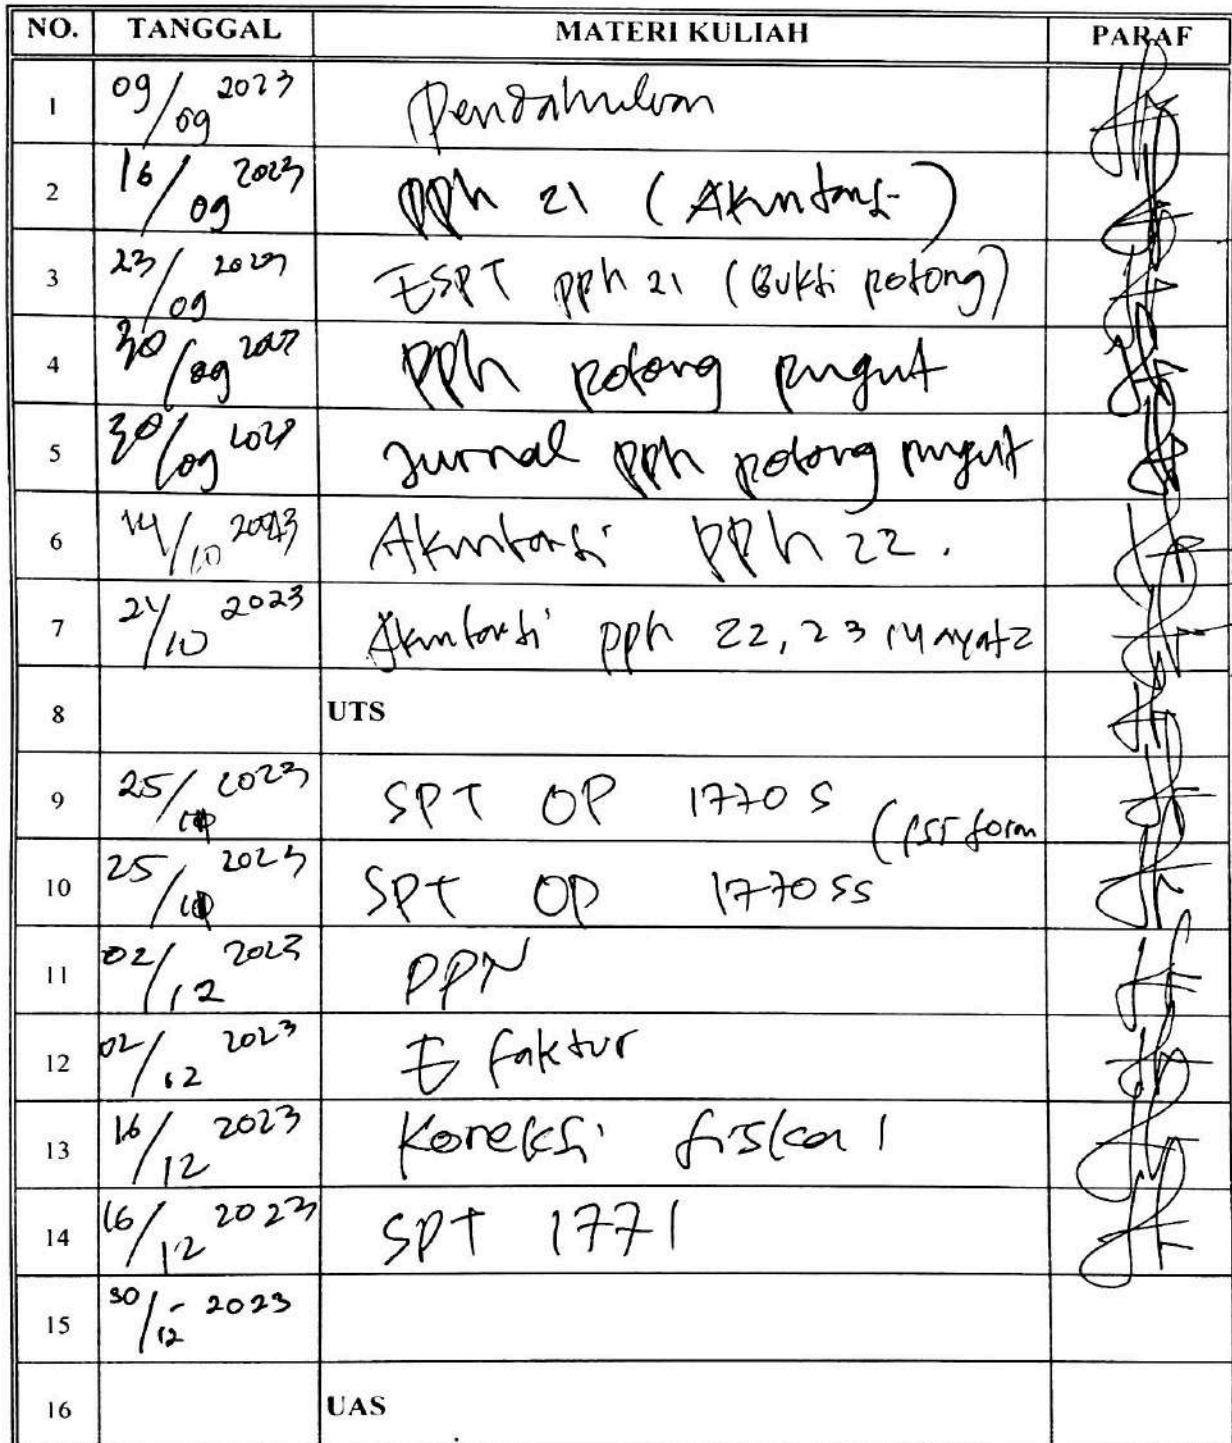 NO. TANGGAL MATERI KULIAH PARAF
1 09/09 2023 Pendahuluan
2 16/09 2023 pph 21 (Akuntansi)
3 23/09 2023 ESPT pph 21 (Bukti potong)
4 30/09 2023 pph potong pungut
5 30/09 2023 Jurnal pph potong pungut
6 14/10 2023 Akuntansi pph 22.
7 21/10 2023 Akuntansi pph 22, 23
8 UTS
9 25/ 2023 SPT OP 1770 S
form
10 25/ 2023 SPT OP 1770 SS
11 02/12 2023 PPN
12 02/12 2023 E faktur
13 16/12 2023 Koreksi fiskal
14 16/12 2023 SPT 1771
15 30/12 - 2023
16 UAS